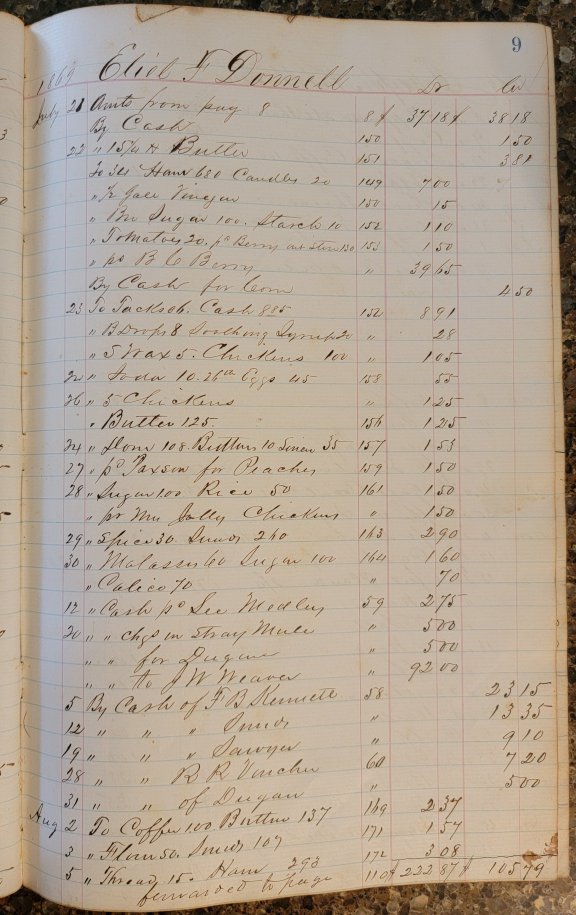 9
1869 Eliot F Donnell Dr Cr
July 21 Amts from pag 8 8 37 18 38 18
By Cash 150 1 50
22 " 15 1/4 # Butter 151 3 81
To 34 Ham 680 Candles 20 149 7 00
" Gall Vinegar 150 15
" Bro Sugar 100. Starch 10 152 1 10
" Tomatoes 20. pd Berry 130 153 1 50
" pd B C Berry " 39 65
By Cash for Corn 4 50
23 To Cash 885 152 8 91
" B Drops 8 Soothing Syrup 20 " 28
" 5 Wax 5. Chickens 100 " 1 05
" Soda 10. 26th Eggs 45 158 55
26 " 5 Chickens " 1 25
" Butter 125. 156 1 25
24 " Flour 108. Buttons 10 35 157 1 53
27 " pd Paxson for Peaches 159 1 50
28 " Sugar 100 Rice 50 161 1 50
" pr Mrs Jolly Chickens " 1 50
29 " Spice 30. Sunds 260 163 2 90
30 " Molasses 60 Sugar 100 164 1 60
" Calico 70 " 70
12 " Cash pd Lee Medley 59 2 75
30 " " chgs on Stray Mule " 5 00
" " for Dugan " 5 00
" " to J W Weaver " 92 00
5 By Cash of F B Kennett 58 23 15
12 " " " Sunds " 13 35
19 " " " Sawyer " 9 10
28 " " R R Voucher 60 7 20
31 " " of Dugan " 5 00
Aug 2 To Coffee 100. Butter 137 169 2 37
3 " Flour 50. Sunds 107 171 1 57
5 " Thread 15. Ham 293 172 3 08
forwarded to page 110 $222 87 $105 79